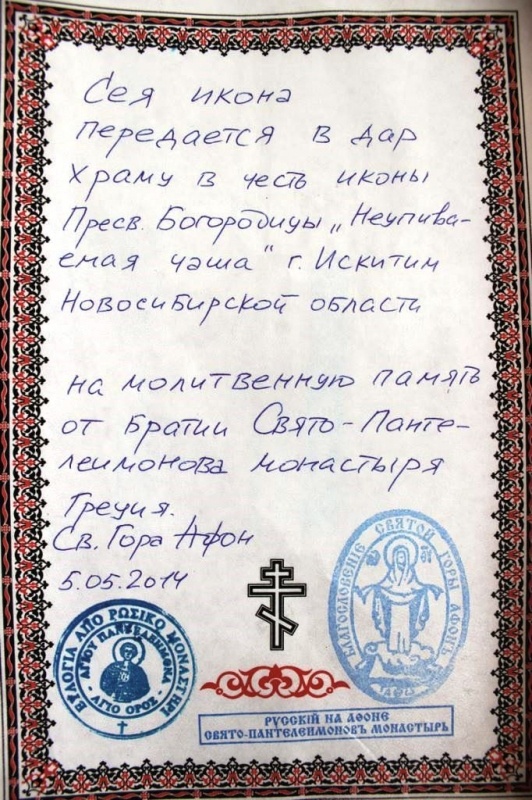 Сея икона
передается в дар
храму в честь иконы
Пресв. Богородицы „Неупива-
емая чаша" г. Искитим
Новосибирской области
на молитвенную память
от братии Свято-Панте-
леимонова монастыря
Греция.
Св. Гора Афон
5.05.2014
ΕΥΛΟΓΙΑ ΑΠΟ ΡΩΣΙΚΟ ΜΟΝΑΣΤΗΡΙ
ΑΓΙΟΥ ΠΑΝΤΕΛΕΗΜΟΝΑ
- ΑΓΙΟ ΟΡΟΣ -
БЛАГОСЛОВЕНІЕ СВЯТОЙ ГОРЫ АѲОНЪ
РУССКІЙ НА АѲОНЕ
СВЯТО-ПАНТЕЛЕИМОНОВЪ МОНАСТЫРЬ